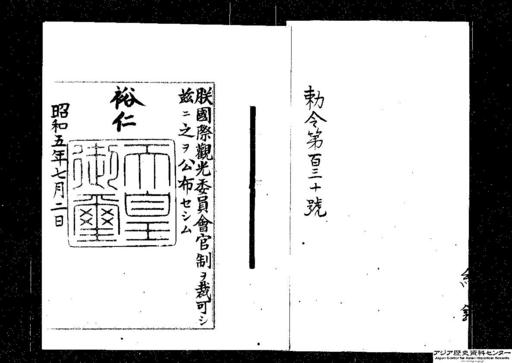 勅令第百三十號
朕國際觀光委員會官制ヲ裁可シ
茲ニ之ヲ公布セシム
裕仁
天皇御璽
昭和五年七月二日
アジア歴史資料センター
Japan Center for Asian Historical Records